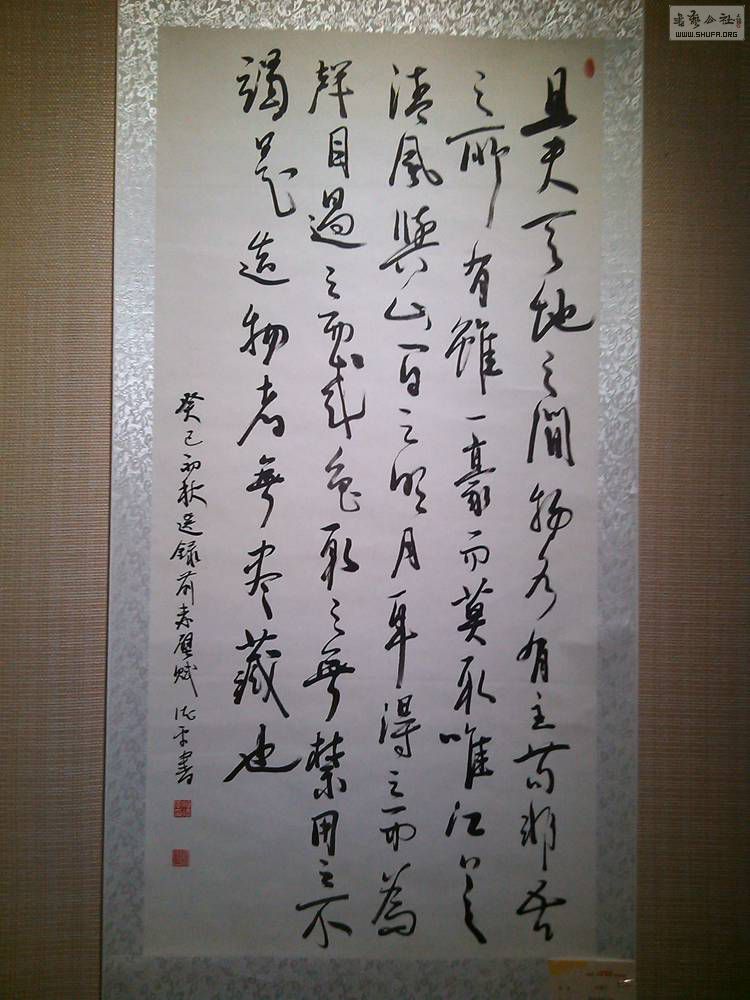 書藝公社
WWW.SHUFA.ORG
且夫天地之間物各有主苟非吾
之所有雖一豪而莫取唯江上之
清風與山間之明月耳得之而為
聲目遇之而成色取之無禁用之不
竭是造物者無盡藏也
癸巳初秋選錄前赤壁賦 平書